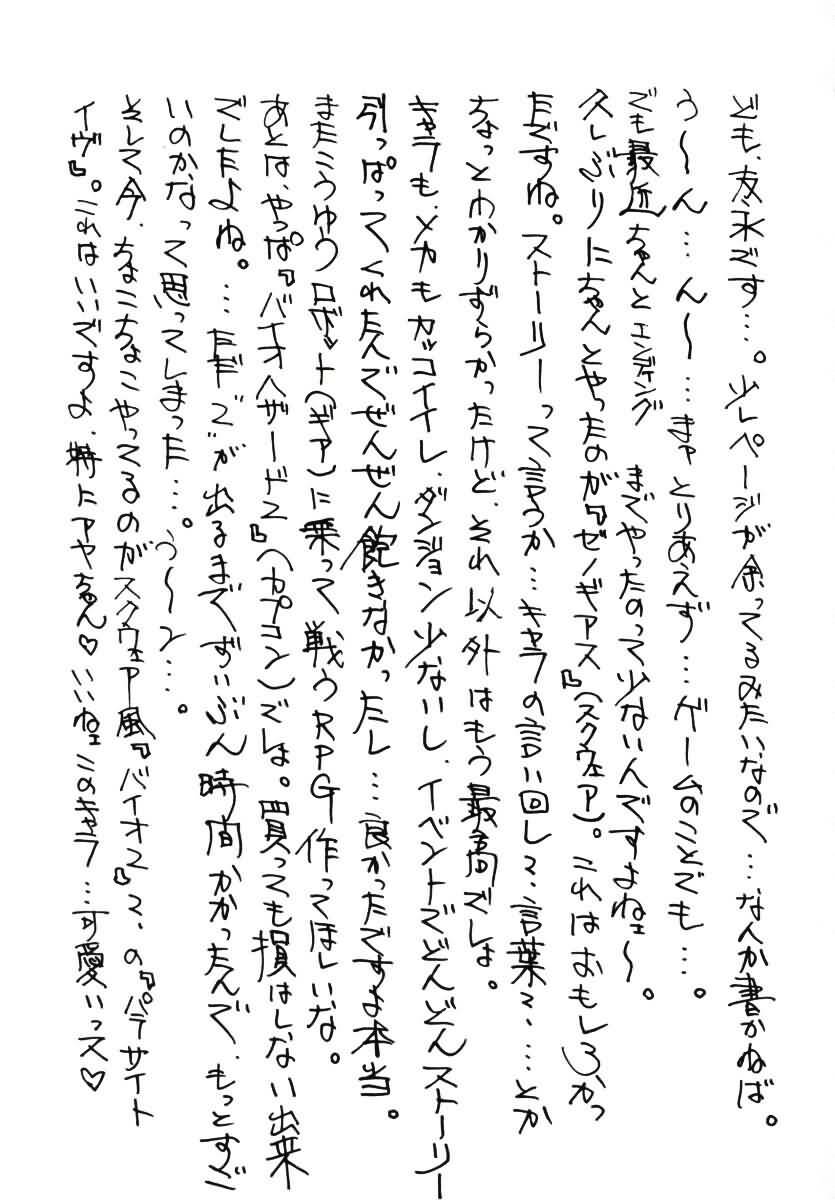 ども、友永です…。少しページが余ってるみたいなので…なんか書かねば。
う～ん…ん～…まァとりあえず…ゲームのことでも…。
でも最近ちゃんとエンディングまでやったのって少ないんですよねェ～。
久しぶりにちゃんとやったのが『ゼノギアス』(スクウェア)。これはおもしろかっ
たですね。ストーリーって言うか…キャラの言い回しで、言葉で、…とか
ちょっとわかりずらかったけど、それ以外はもう最高でしょ。
キャラも、メカもカッコイイし、ダンジョン少ないし、イベントでどんどんストーリー
引っぱってくれたんでぜんぜん飽きなかったし…良かったですよ本当。
またこうゆうロボット(ギア)に乗って戦うRPG作ってほしいな。
あとは、やっぱ『バイオハザード2』(カプコン)でしょ。買っても損はしない出来
でしたよね。…ただ“2”が出るまでずいぶん時間かかったんで、もっとすご
いのかなって思ってしまった…。う～ン…。
そして今、ちょこちょこやってるのがスクウェア風『バイオ2』で、の『パラサイト
イヴ』。これはいいですよ、特にアヤちゃん♡いいねェこのキャラ…可愛いっス♡